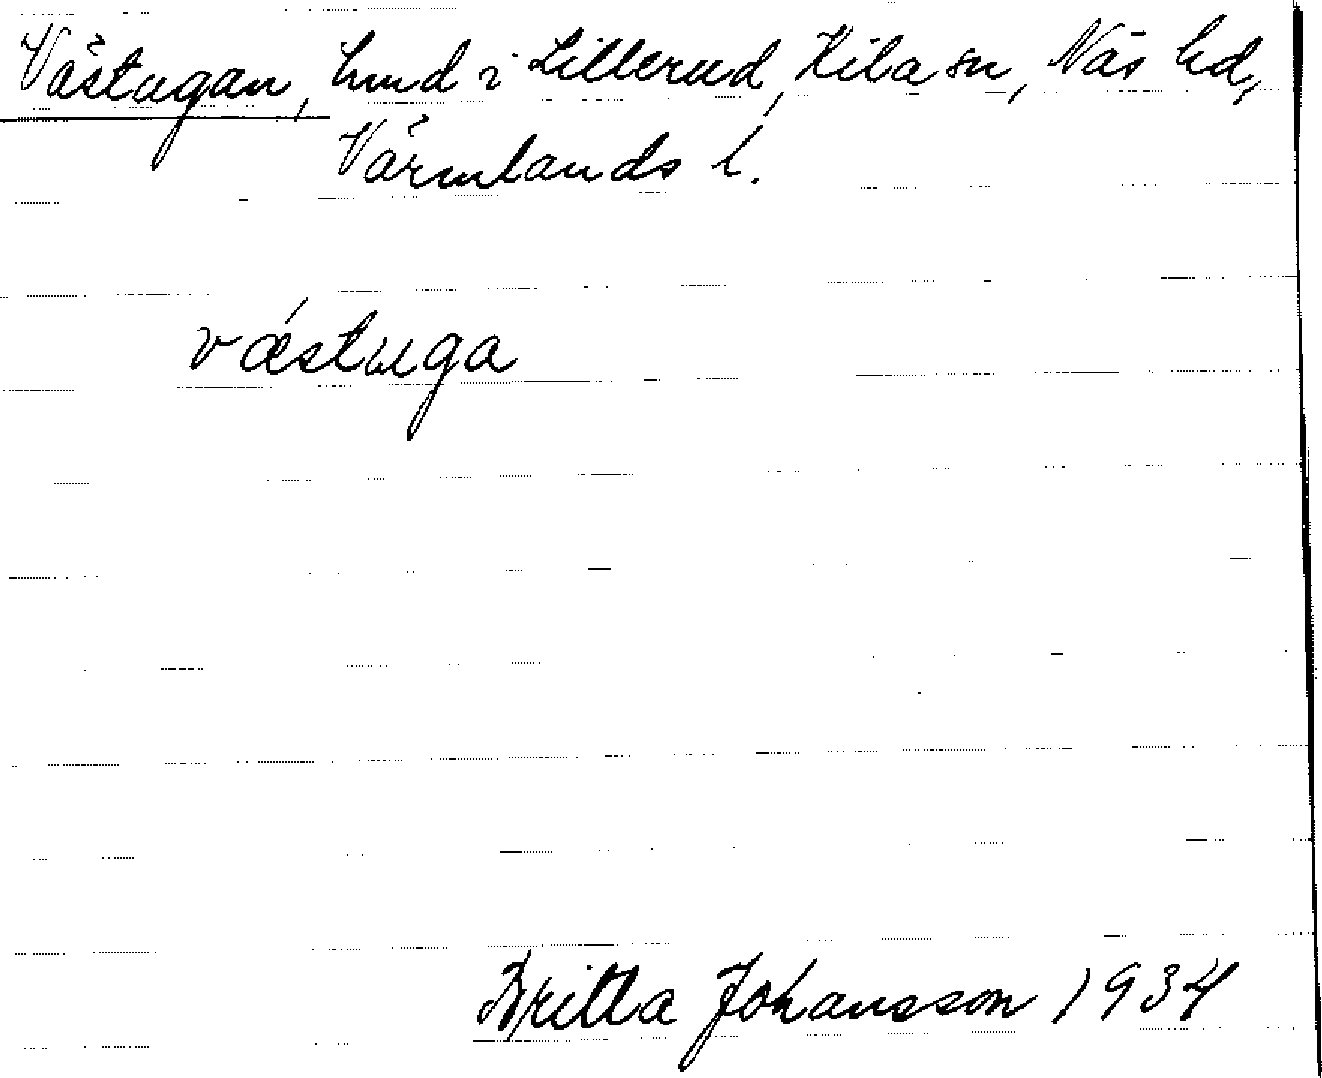 Västugan, hmd i Lillerud, Kila sn, Näs hd,
Värmlands l.
vǽstuga
Britta Johansson 1934